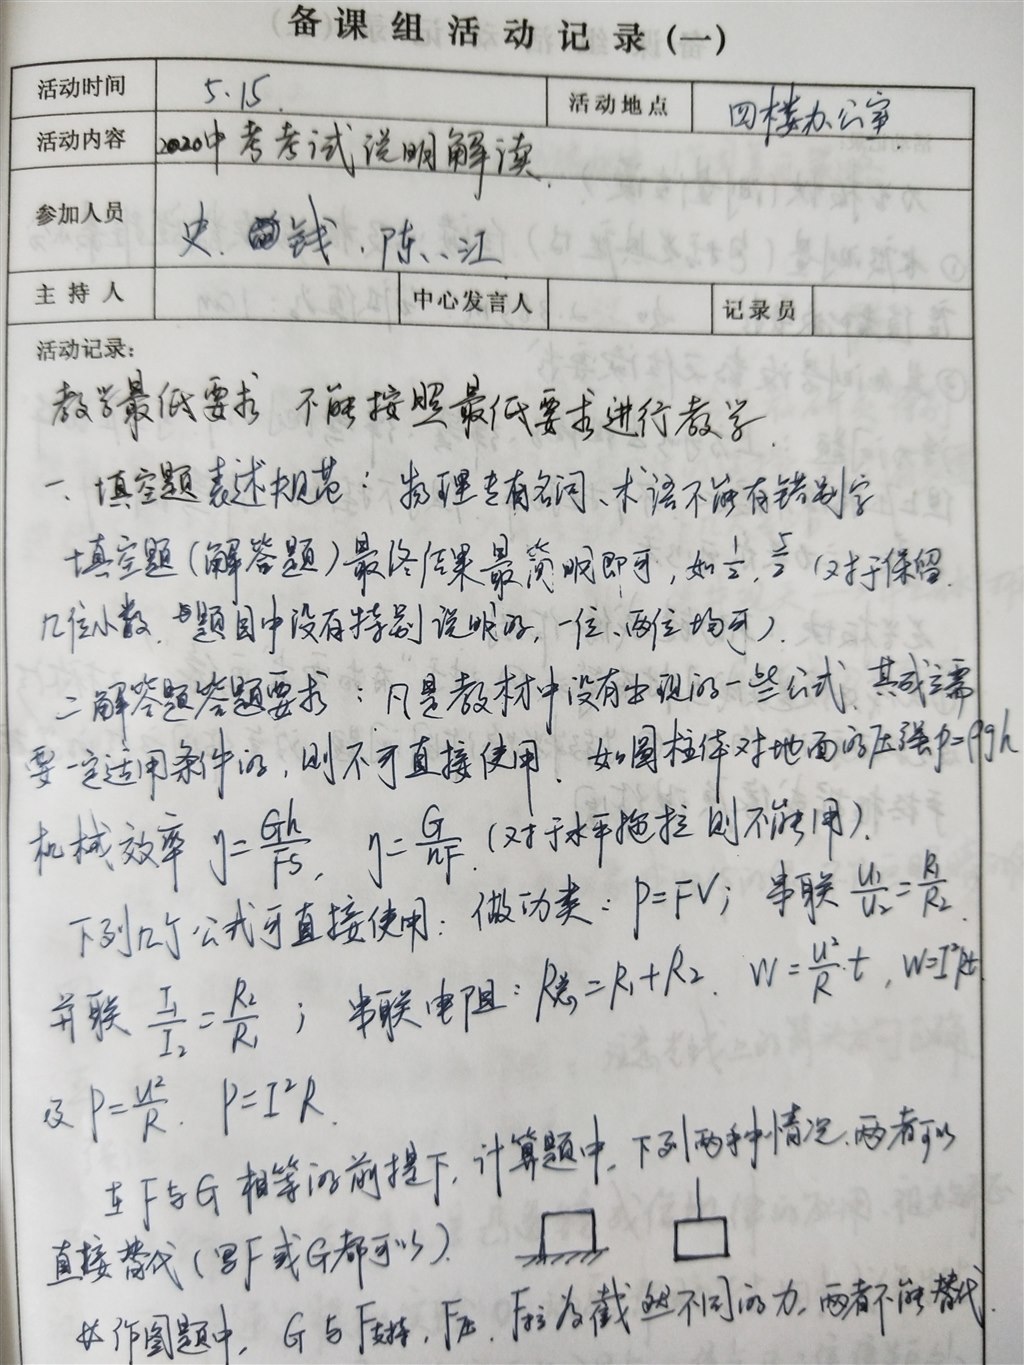 备课组活动记录(一)
活动时间 5.15. 活动地点 四楼办公室.
活动内容 2020中考考试说明解读.
参加人员 史.钱.陈.江
主持人 中心发言人 记录员
活动记录:
教学最低要求 不能按照最低要求进行教学.
一、填空题表述规范:物理专有名词、术语不能有错别字
填空题(解答题)最终结果最简明即可,如1/2, 5/2 (对于保留
几位小数.题目中没有特别说明的,一位、两位均可).
二解答题答题要求:凡是教材中没有出现的一些公式、其成立需
要一定适用条件的,则不可直接使用.如圆柱体对地面的压强p=ρgh
机械效率 η=Gh/FS, η=G/nF (对于水平拖拉则不能用).
下列几个公式可直接使用:做功类:P=FV; 串联 U₁/U₂=R₁/R₂.
并联 I₁/I₂=R₂/R₁ ; 串联电阻:R总=R₁+R₂. W=U²/R·t, W=I²Rt
及 P=U²/R. P=I²R.
在F与G相等的前提下,计算题中,下列两种情况.两者可以
直接替代(写F或G都可以).
作图题中, G与F支持, F压. F拉为截然不同的力,两者不能替代.